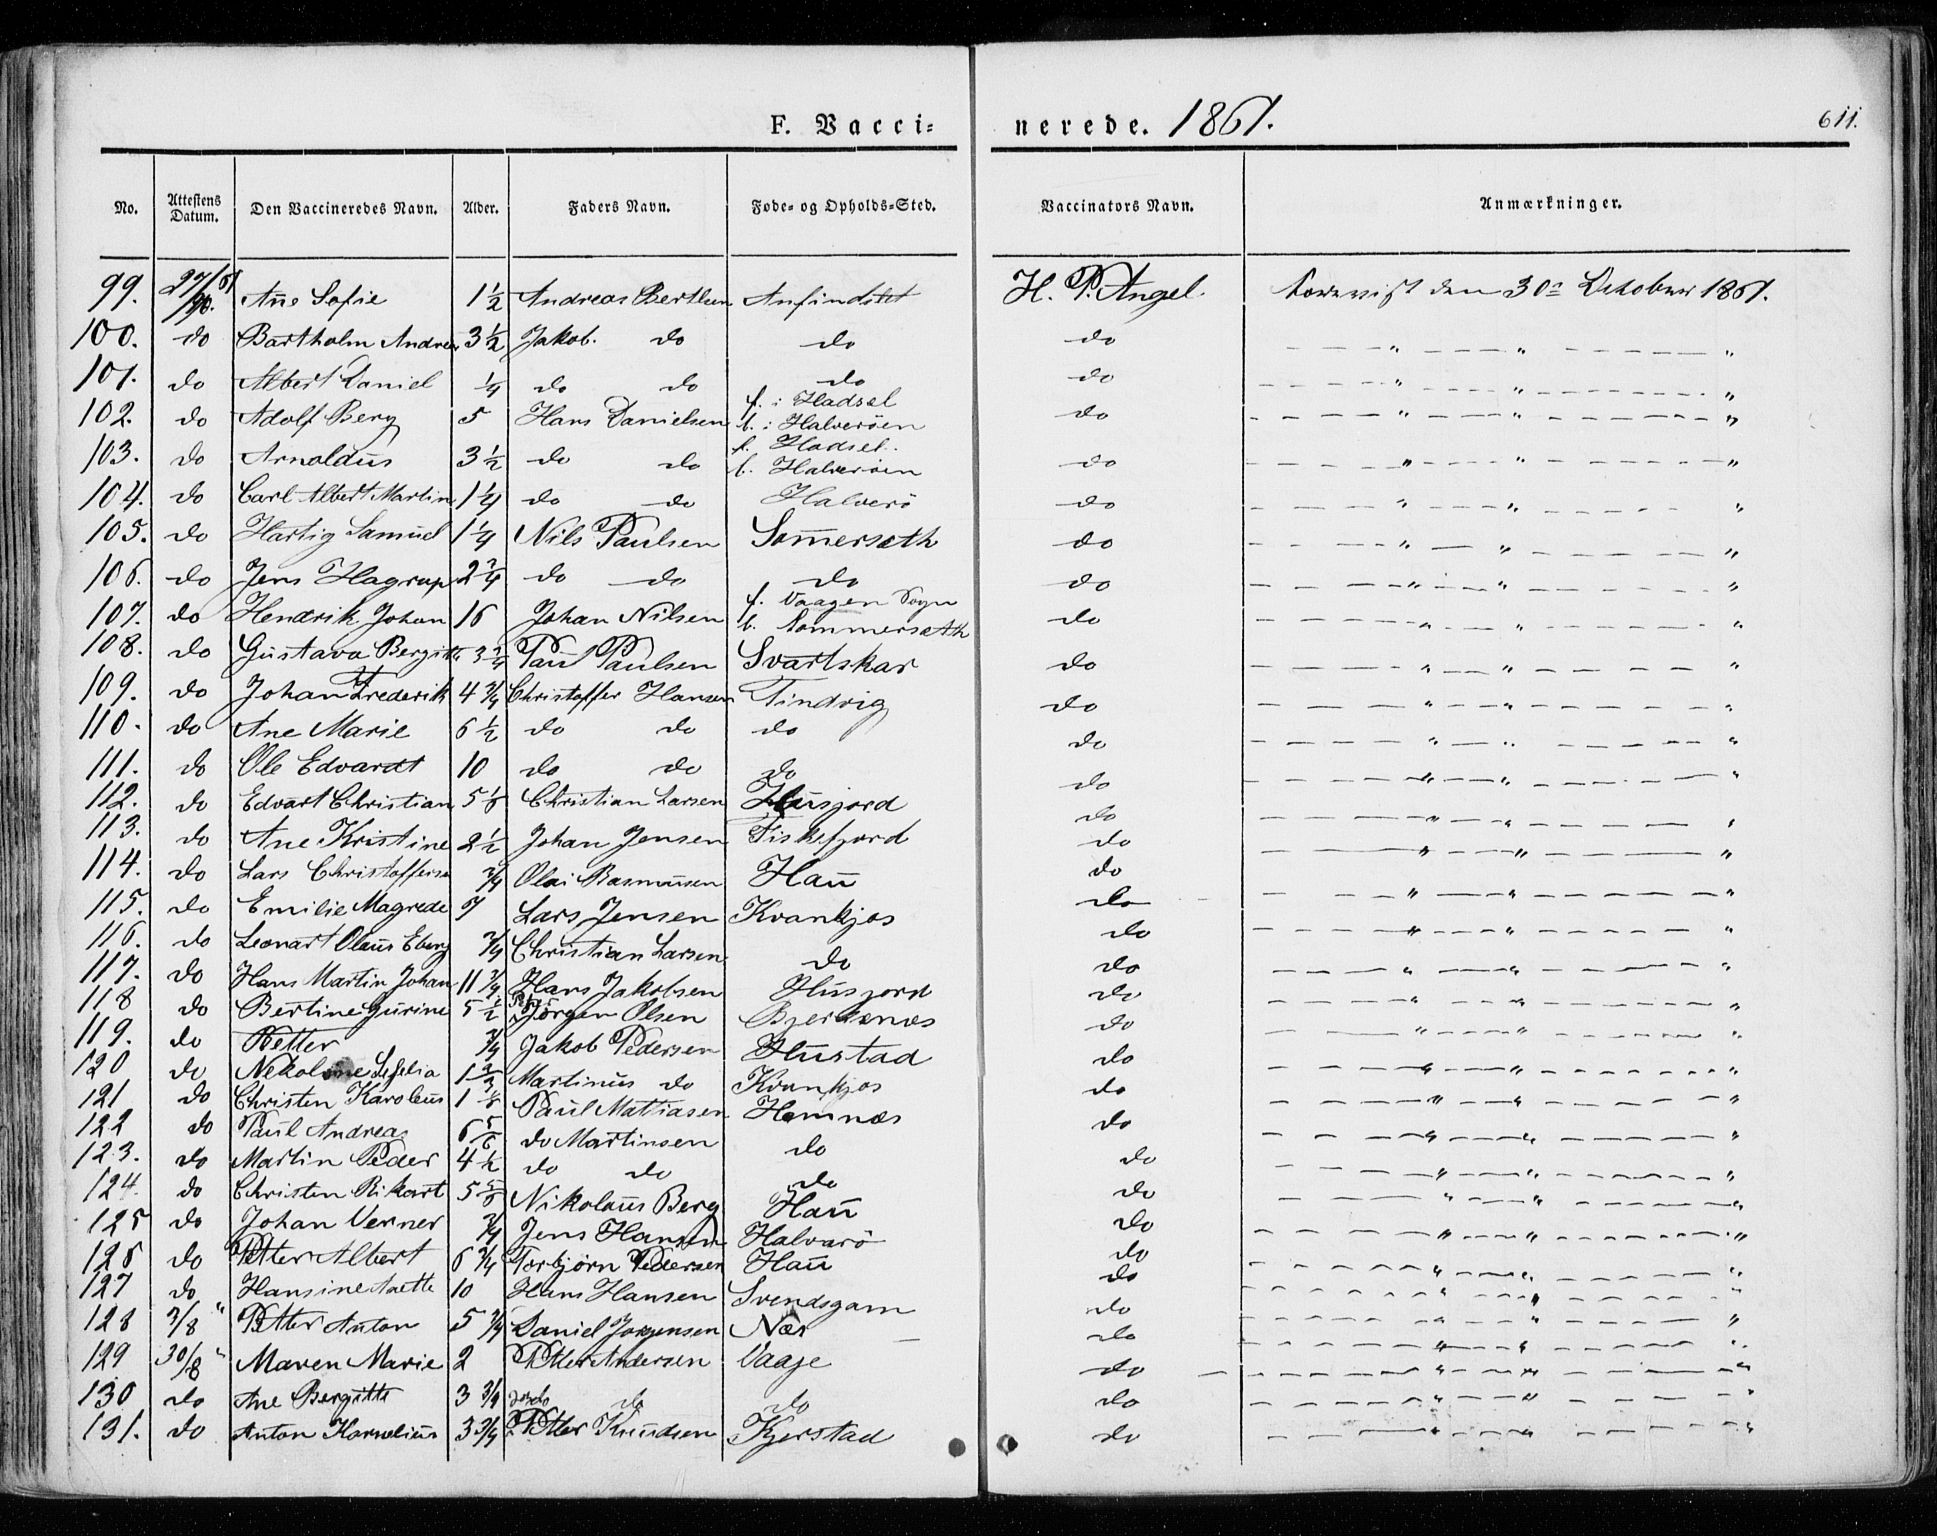 F. Vacci= nerede. 1861. 611.
No. Attestens Datum. Den Vaccineredes Navn. Alder. Faders Navn. Føde= og Opholds=Sted. Vaccinators Navn. Anmærkninger.
99. Ane Sofie 1 1/2 Andreas H. P. Angel den 30 1861.
100. do Bartholm Andreas 3 1/2 Jakob. do do do — — — " — — — " — — — "
101. do Albert Daniel 1/4 do do do do — — — " — — — " — — — "
102. do Adolf Berg 5 Hans Danielsen f. i Hadsel b. i Halverøen do — — — " — — — " — — — "
103. do Arnoldus 3 1/2 do do f. Hadsel. b. Halverøen do — — — " — — — " — — — "
104. do Carl Albert Martin 1 1/4 do do Halverö do — — — " — — — " — — — "
105. do Hartig Samuel 1 1/4 Nils Paulsen Somersæth do — — — " — — — " — — — "
106. do Jens Hagrup 2 3/4 do do do do — — — " — — — " — — — "
107. do Hendrik Johan 16 Johan Nilsen f. Vaagen Sogn b. Sommersæth do — — — " — — — " — — — "
108. do Gustava Bergitte 3 3/4 Paul Paulsen Svartskar do — — — " — — — " — — — "
109. do Johan Frederik 4 3/4 Christoffer Hansen Tindvig do — — — " — — — " — — — "
110. do Ane Marie 6 1/2 do do do do — — — " — — — " — — — "
111. do Ole Edvardt 10 do do do do — — — " — — — " — — — "
112. do Edvart Christian 5 Christian Larsen Husjord do — — — " — — — " — — — "
113. do Ane Kristine 2 1/2 Johan Jensen Fiskefjord do — — — " — — — " — — — "
114. do Lars 3/4 Olai Rasmusen Hau do — — — " — — — " — — — "
115. do Emilie Magrede Lars Jensen Kvankjos do — — — " — — — " — — — "
116. do Leonart Olaus 3/4 Christian Larsen do do — — — " — — — " — — — "
117. do Hans Martin Johan 11 3/4 Hans Jakobsen Husjord do — — — " — — — " — — — "
118 do Bertine Gurine 5 1/2 Jørgen Olsen Bjerkenæs do — — — " — — — " — — — "
119. do Petter 3/4 Jakob Pedersen Hustad do — — — " — — — " — — — "
120 do 1 2/3 Martinus do Kvankjos do — — — " — — — " — — — "
121 do Christen Karolius 1 Paul Matiasen Hemnæs do — — — " — — — " — — — "
122 do Paul Andreas 6 5/6 do Martinsen do do — — — " — — — " — — — "
123. do Martin Peder 4 1/2 do do do do — — — " — — — " — — — "
124. do Christen Rikart 5 Nikolaus Berg Hau do — — — " — — — " — — — "
125 do Johan Verner 3/4 Jens Hansen Halvarö do — — — " — — — " — — — "
126 do Petter Albert 6 3/4 Torbjørn Pedersen Hau do — — — " — — — " — — — "
127 do Hansine Anette 10 Hans Hansen Svendsgam do — — — " — — — " — — — "
128 3/8 " Petter Anton 5 3/4 Daniel Jorgensen Nær do — — — " — — — " — — — "
129 30/8 " Maren Marie 2 Petter Andersen Vaaje do — — — " — — — " — — — "
130 do Ane Bergitte 3 3/4 do do do — — — " — — — " — — — "
131. do Anton Kornelius 3 3/4 Petter Knudsen Kjerstad do — — — " — — — " — — — "